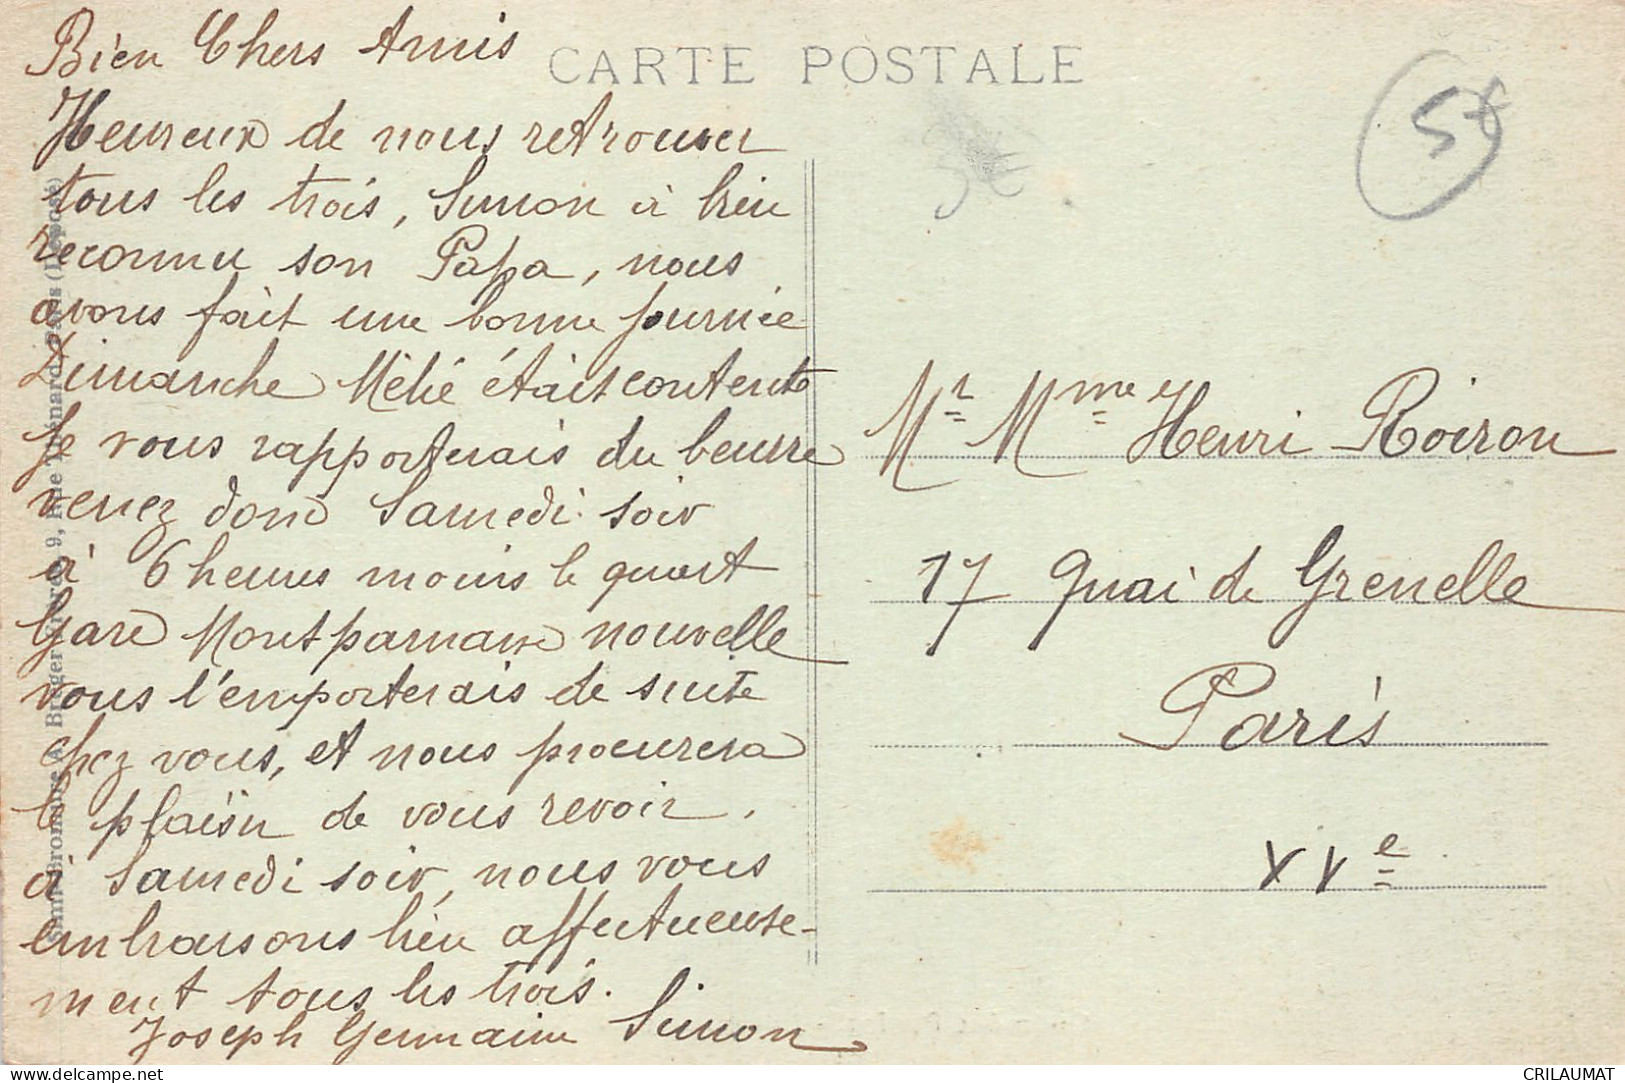 Bien Chers Amis
CARTE POSTALE
5€
3€
Heureux de nous retrouver
tous les trois, Simon à bien
reconnu son Papa, nous
avons fait une bonne journée
Dimanche Mélie était contente
Je vous rapporterais du beurre
venez donc Samedi soir
à 6 heures moins le quart
Gare Montparnasse nouvelle
vous l'emporterais de suite
chez vous, et nous procurera
le plaisir de vous revoir.
à Samedi soir, nous vous
embrassons bien affectueuse-
ment tous les trois.
Joseph Germaine Simon
Mr Mme Henri Roiron
17 Quai de Grenelle
Paris
XVe
9, Rue Thénard, Paris (Déposé)
CRILAUMAT